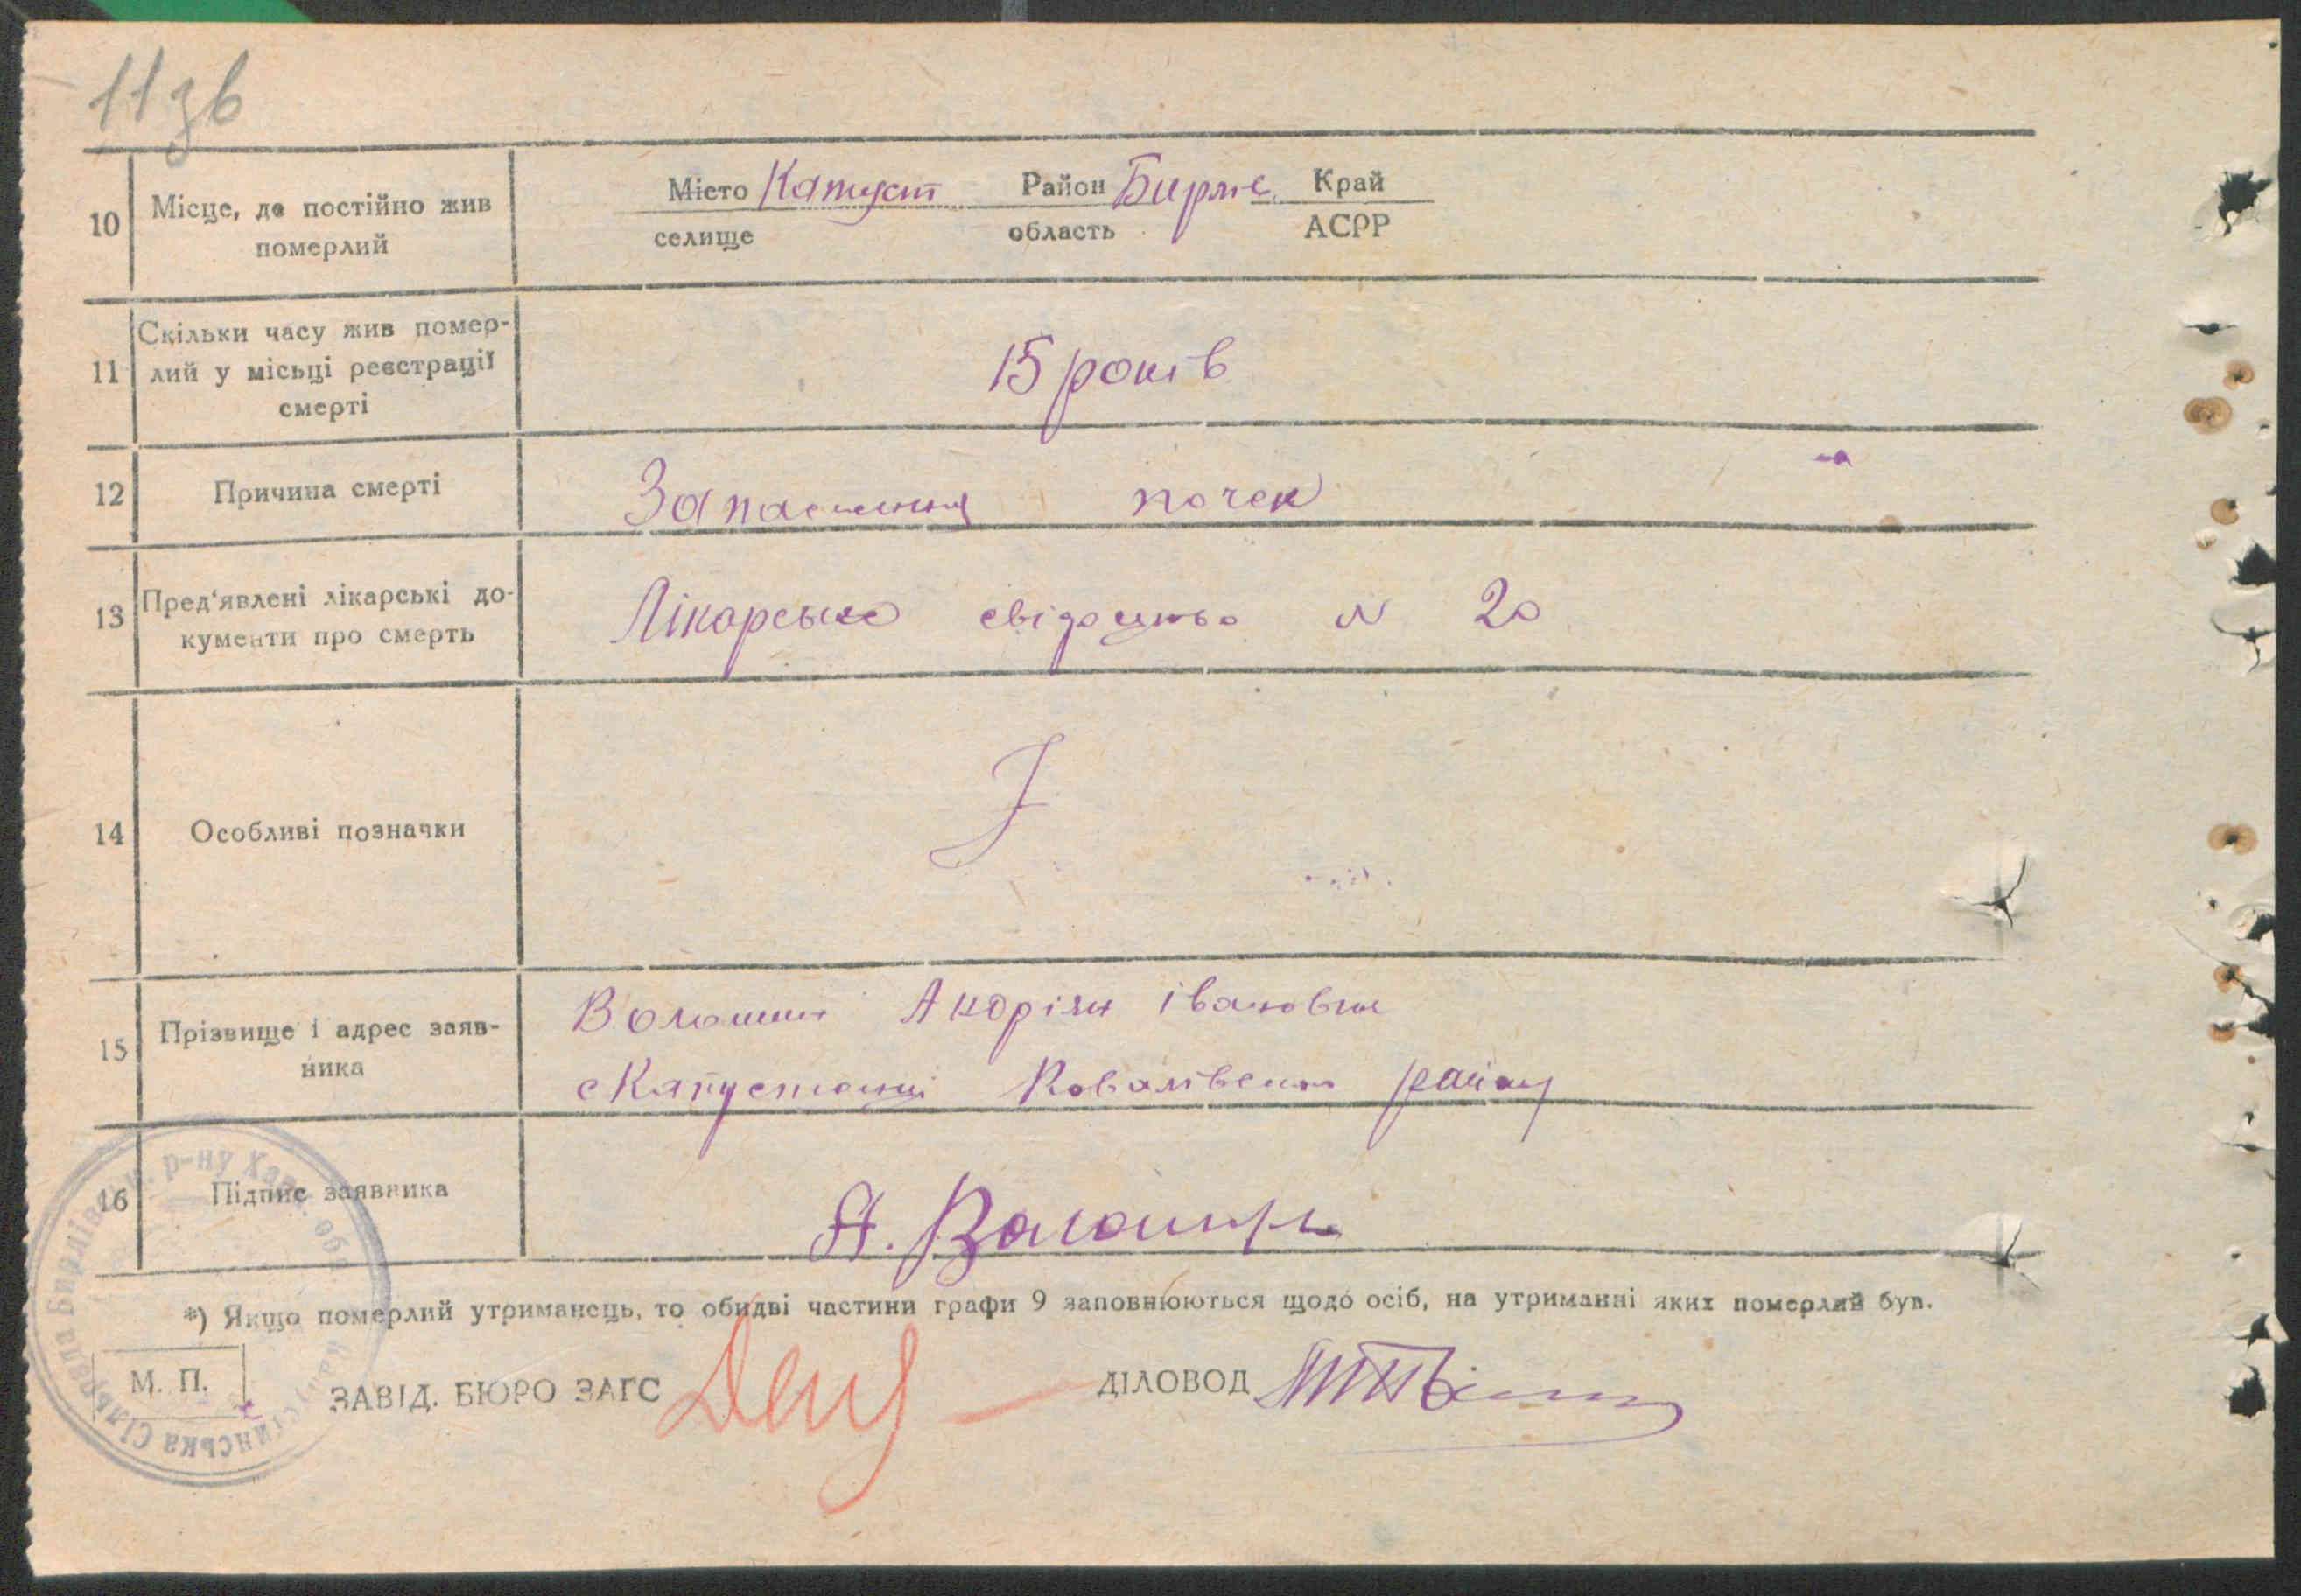 11 зв
10 Місце, де постійно жив померлий
Місто Капуст Район Бирл Край
селище область АСРР
11 Скільки часу жив помер-
лий у місьці реєстрації
смерті
15 років
12 Причина смерті
Запалення почек
13 Пред'явлені лікарські до-
кументи про смерть
Лікарське свідоцтво N 20
14 Особливі позначки
15 Прізвище і адрес заяв-
ника
Волошин Андріян івановил
с Капустяні Ковалівського району
16 Підпис заявника
А. Волошин
*) Якщо померлий утриманець, то обидві частини графи 9 заповнюються щодо осіб, на утриманні яких померлий був.
М. П.
ЗАВІД. БЮРО ЗАГС
ДІЛОВОД
р-ну Хар. обл.